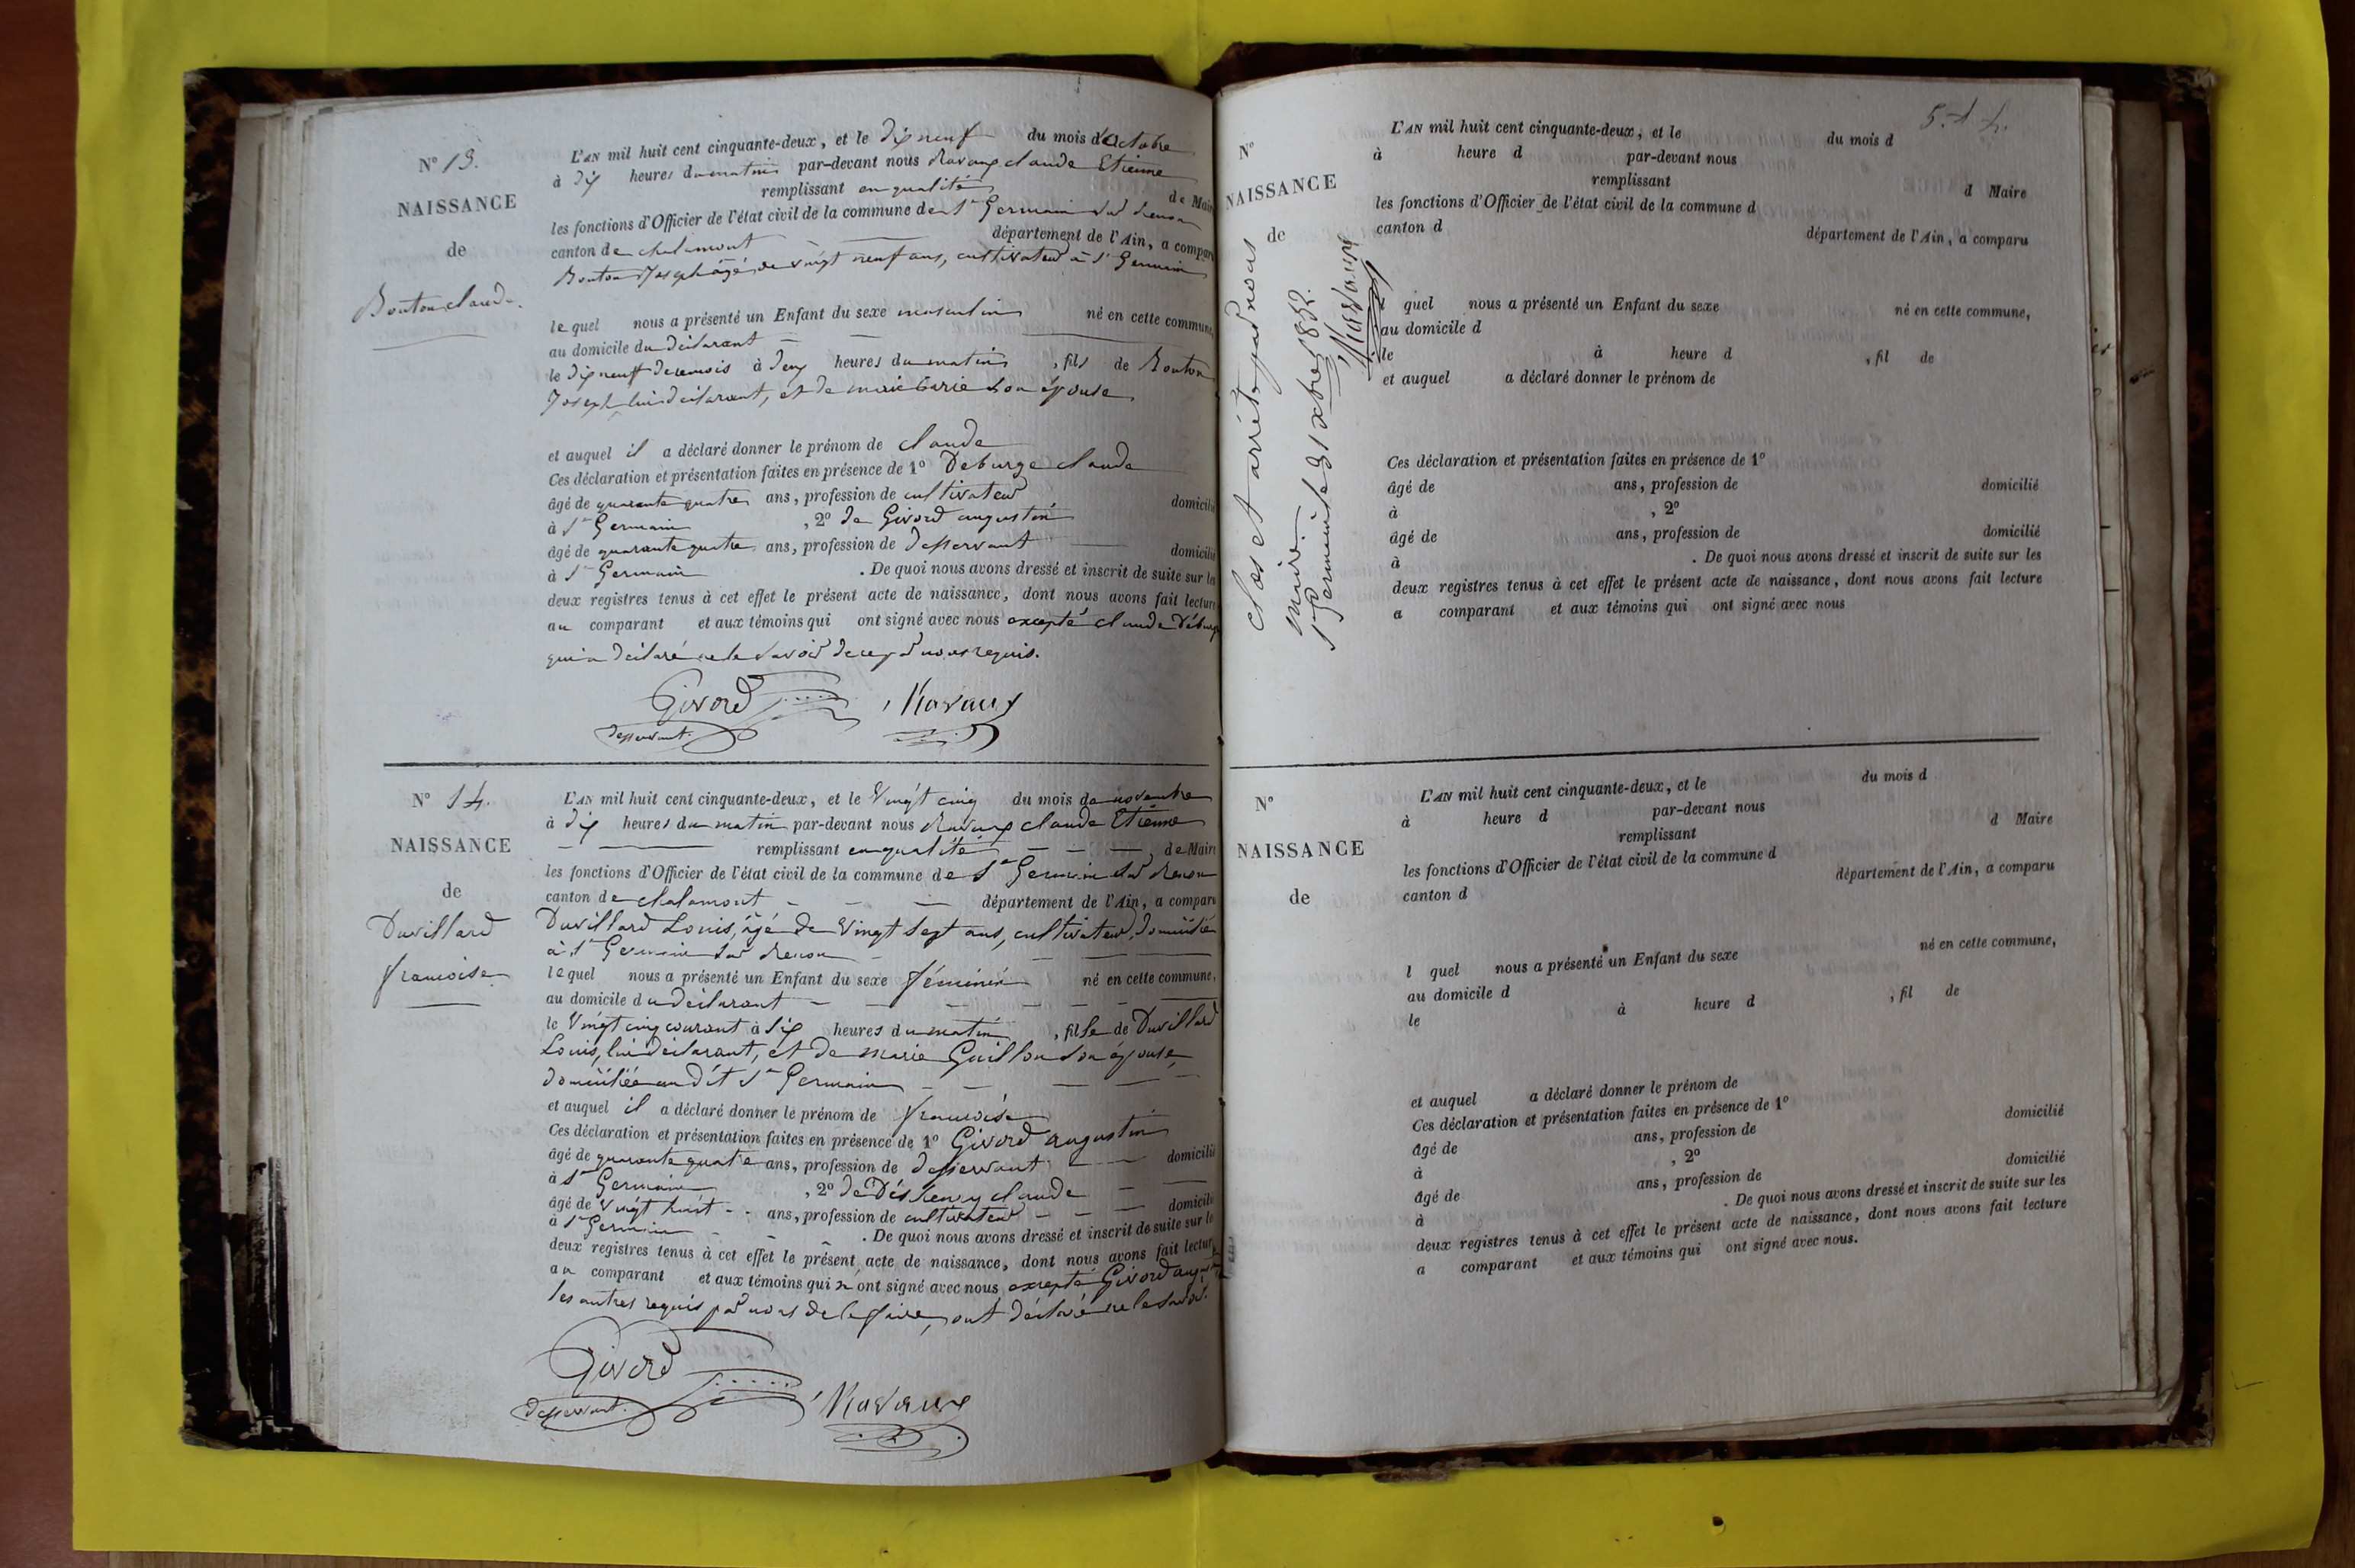 N° 13.
NAISSANCE
de
Bouton claude.
L'AN mil huit cent cinquante-deux, et le dix neuf du mois d'Octobre
à dix heures du matin par-devant nous Ravaux claude Etienne
remplissant en qualité de Maire
les fonctions d'Officier de l'état civil de la commune de St Germain sur Renon
canton de chalamont département de l'Ain, a comparu
Bouton Joseph âgé de vingt neuf ans, cultivateur à St Germain
lequel nous a présenté un Enfant du sexe masculin né en cette commune,
au domicile du déclarant
le dix neuf de ce mois à deux heures du matin, fils de Bouton
Joseph, lui déclarant, et de marie son épouse
et auquel il a déclaré donner le prénom de claude
Ces déclaration et présentation faites en présence de 1° Deburge claude
âgé de quarante quatre ans, profession de cultivateur domicilié
à St Germain, 2° de Givord augustin
âgé de quarante quatre ans, profession de desservant domicilié
à St Germain. De quoi nous avons dressé et inscrit de suite sur les
deux registres tenus à cet effet le présent acte de naissance, dont nous avons fait lecture
au comparant et aux témoins qui ont signé avec nous excepté claude Déburge
qui a déclaré ne le savoir de ce par nous requis.
Givord Ravaux
desservant.
N° 14.
NAISSANCE
de
Duvillard
francoise
L'AN mil huit cent cinquante-deux, et le Vingt cinq du mois de novembre
à dix heures du matin par-devant nous Ravaux claude Etienne
remplissant en qualité de Maire
les fonctions d'Officier de l'état civil de la commune de St Germain sur Renon
canton de chalamont département de l'Ain, a comparu
Duvillard Louis, âgé de Vingt sept ans, cultivateur, domicilié
à St Germain sur Renon
lequel nous a présenté un Enfant du sexe féminin né en cette commune,
au domicile du déclarant
le Vingt cinq courant à six heures du matin, fille de Duvillard
Louis, lui déclarant, et de marie Guillon son épouse,
domiciliée au dit St Germain
et auquel il a déclaré donner le prénom de francoise
Ces déclaration et présentation faites en présence de 1° Givord augustin
âgé de quarante quatre ans, profession de desservant domicilié
à St Germain, 2° de claude
âgé de Vingt huit ans, profession de cultivateur domicilié
à St Germain. De quoi nous avons dressé et inscrit de suite sur les
deux registres tenus à cet effet le présent acte de naissance, dont nous avons fait lecture
au comparant et aux témoins qui n'ont signé avec nous, excepté Givord augustin
les autres requis par nous de le faire, ont déclaré ne le savoir.
Givord
desservant. Ravaux
N°
NAISSANCE
de
clos et arrêté par nous
maire.
St Germain le 31 xbre 1852.
Ravaux
L'AN mil huit cent cinquante-deux, et le du mois d
à heure d par-devant nous
remplissant d Maire
les fonctions d'Officier de l'état civil de la commune d
canton d département de l'Ain, a comparu
l quel nous a présenté un Enfant du sexe né en cette commune,
au domicile d
le à heure d, fil de
et auquel a déclaré donner le prénom de
Ces déclaration et présentation faites en présence de 1°
âgé de ans, profession de domicilié
à, 2°
âgé de ans, profession de domicilié
à. De quoi nous avons dressé et inscrit de suite sur les
deux registres tenus à cet effet le présent acte de naissance, dont nous avons fait lecture
a comparant et aux témoins qui ont signé avec nous
N°
NAISSANCE
de
L'AN mil huit cent cinquante-deux, et le du mois d
à heure d par-devant nous
remplissant d Maire
les fonctions d'Officier de l'état civil de la commune d
canton d département de l'Ain, a comparu
l quel nous a présenté un Enfant du sexe né en cette commune,
au domicile d
le à heure d, fil de
et auquel a déclaré donner le prénom de
Ces déclaration et présentation faites en présence de 1°
âgé de ans, profession de domicilié
à, 2°
âgé de ans, profession de domicilié
à. De quoi nous avons dressé et inscrit de suite sur les
deux registres tenus à cet effet le présent acte de naissance, dont nous avons fait lecture
a comparant et aux témoins qui ont signé avec nous.